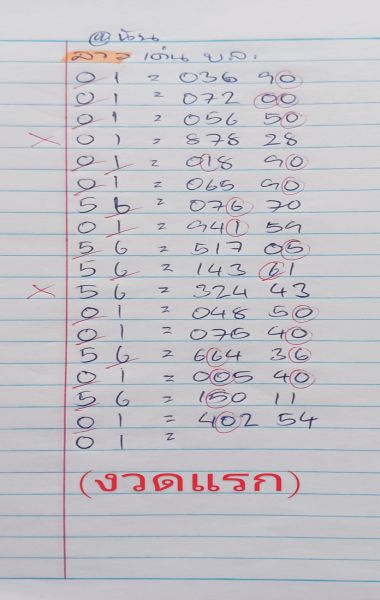 @นัน
ลาว เด่น บล.
01 = 036 90
01 = 072 00
01 = 056 50
× 01 = 878 28
01 = 018 90
01 = 065 90
56 = 076 70
01 = 941 59
56 = 517 05
56 = 143 61
× 56 = 324 43
01 = 048 50
01 = 075 40
56 = 664 36
01 = 005 40
56 = 150 11
01 = 402 54
01 =
(งวดแรก)